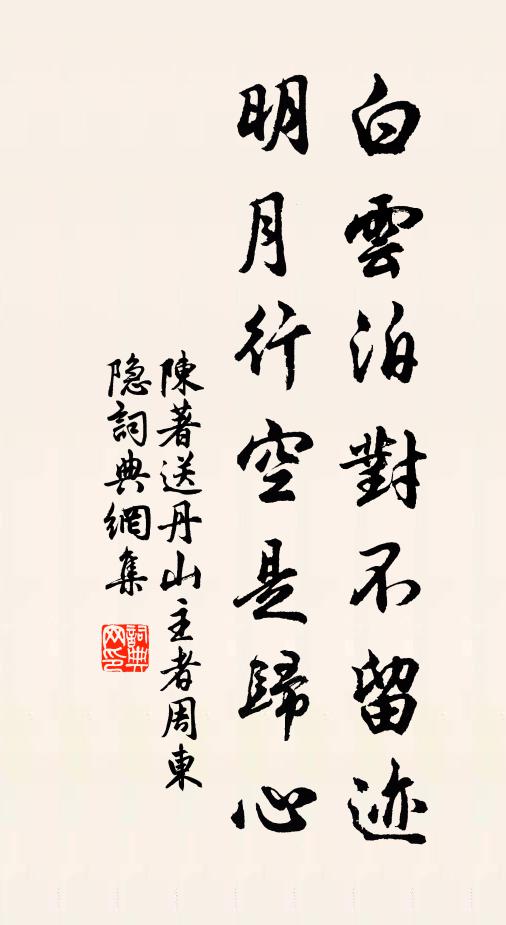 白雲泊對不留迹
明月行空是歸心
陳著送丹山主者周東
隐詞典網集
詞典網印